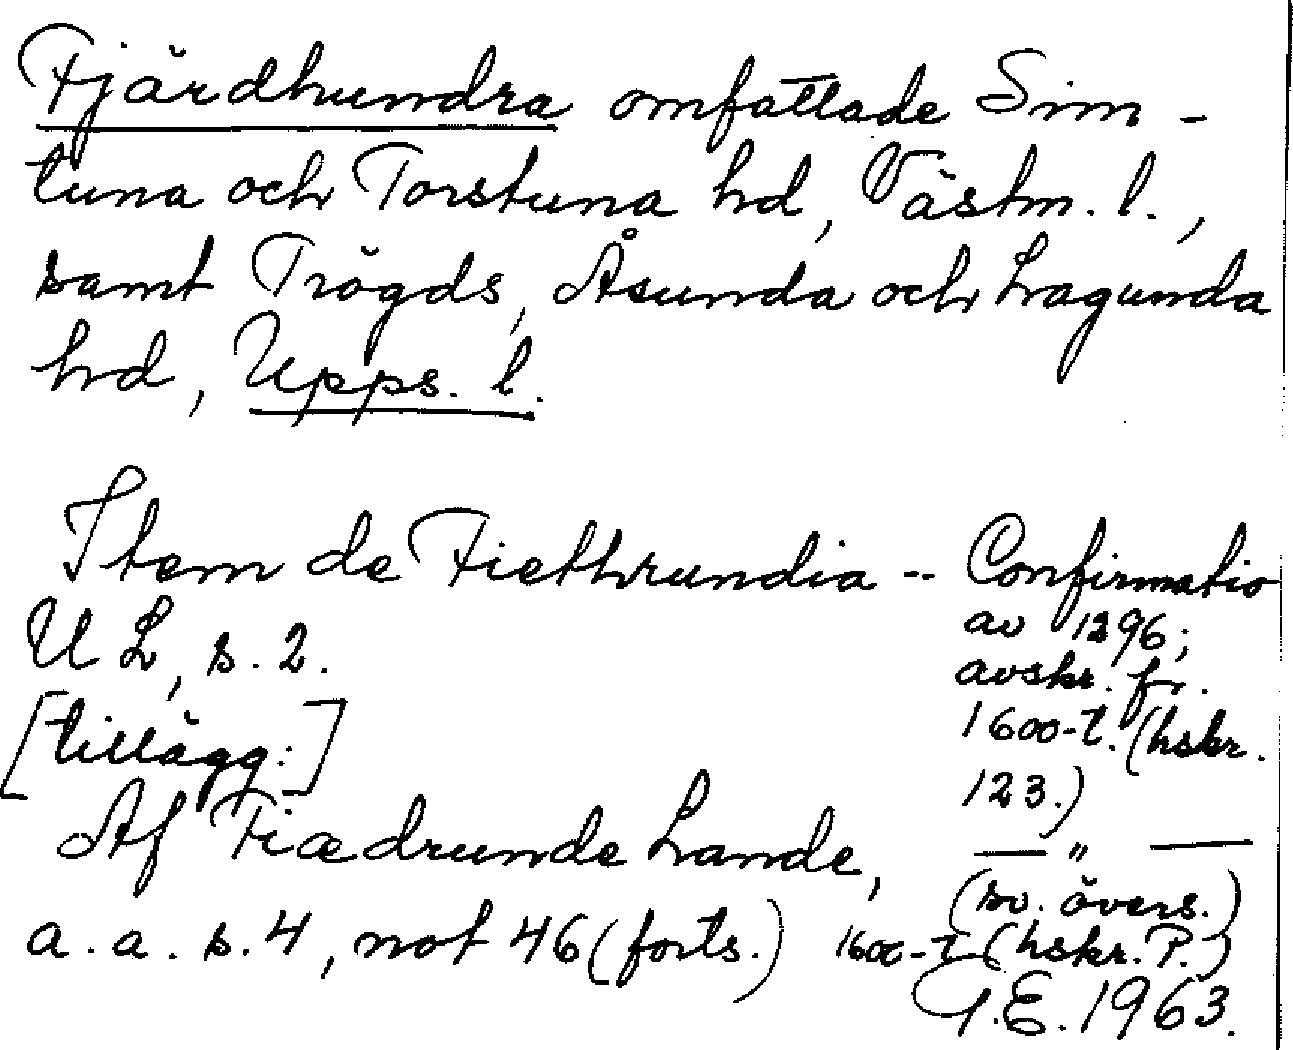 Fjärdhundra omfattade Sim-
tuna och Torstuna hd, Västm. l.,
samt Trögds, Åsunda och Lagunda
hd, Upps. l.
Item de Fiethrundia -- Confirmatio
UL, s. 2.
av 1296;
avskr. fr.
1600-t. (hskr.
123.)
[tillägg:]
Af Fiædrunde Lande,
a. a. s. 4, not 46 (forts.)
— „ —
(sv. övers.)
1600-t (hskr. P.)
G.E. 1963.